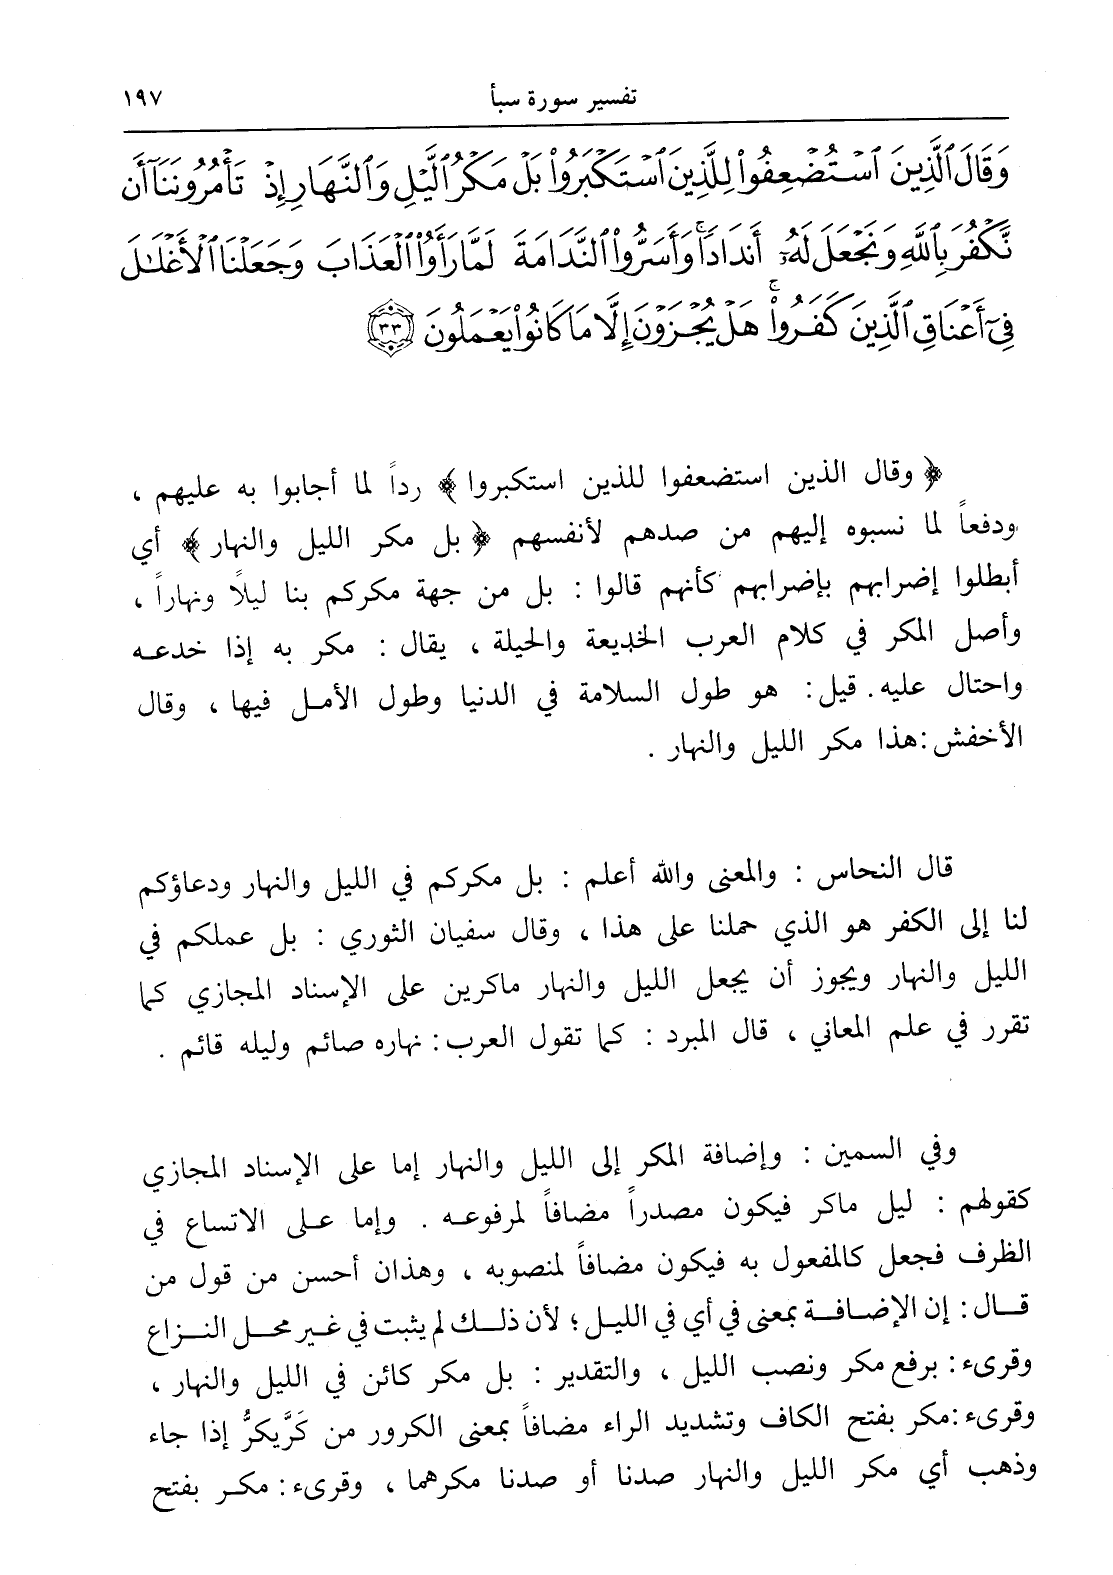 تفسير سورة سبأ ١٩٧
وَقَالَ ٱلَّذِينَ ٱسْتُضْعِفُوا۟ لِلَّذِينَ ٱسْتَكْبَرُوا۟ بَلْ مَكْرُ ٱلَّيْلِ وَٱلنَّهَارِ إِذْ تَأْمُرُونَنَآ أَن
نَّكْفُرَ بِٱللَّهِ وَنَجْعَلَ لَهُۥٓ أَندَادًا ۚ وَأَسَرُّوا۟ ٱلنَّدَامَةَ لَمَّا رَأَوُا۟ ٱلْعَذَابَ وَجَعَلْنَا ٱلْأَغْلَٰلَ
فِىٓ أَعْنَاقِ ٱلَّذِينَ كَفَرُوا۟ ۚ هَلْ يُجْزَوْنَ إِلَّا مَا كَانُوا۟ يَعْمَلُونَ ٣٣
﴿ وقال الذين استضعفوا للذين استكبروا ﴾ رداً لما أجابوا به عليهم ،
ودفعاً لما نسبوه إليهم من صدهم لأنفسهم ﴿ بل مكر الليل والنهار ﴾ أي
أبطلوا إضرابهم بإضرابهم كأنهم قالوا : بل من جهة مكركم بنا ليلًا ونهاراً ،
وأصل المكر في كلام العرب الخديعة والحيلة ، يقال : مكر به إذا خدعه
واحتال عليه. قيل: هو طول السلامة في الدنيا وطول الأمل فيها ، وقال
الأخفش :هذا مكر الليل والنهار .
قال النحاس : والمعنى والله أعلم : بل مكركم في الليل والنهار ودعاؤكم
لنا إلى الكفر هو الذي حملنا على هذا ، وقال سفيان الثوري : بل عملكم في
الليل والنهار ويجوز أن يجعل الليل والنهار ماكرين على الإسناد المجازي كما
تقرر في علم المعاني ، قال المبرد : كما تقول العرب: نهاره صائم وليله قائم .
وفي السمين : وإضافة المكر إلى الليل والنهار إما على الإسناد المجازي
كقولهم : ليل ماكر فيكون مصدراً مضافاً لمرفوعه . وإما على الاتساع في
الظرف فجعل كالمفعول به فيكون مضافاً لمنصوبه ، وهذان أحسن من قول من
قال : إن الإضافة بمعنى في أي في الليل ؛ لأن ذلك لم يثبت في غير محل النزاع
وقرىء : برفع مكر ونصب الليل ، والتقدير : بل مكر كائن في الليل والنهار ،
وقرىء :مكر بفتح الكاف وتشديد الراء مضافاً بمعنى الكرور من كَرَّ يكرُّ إذا جاء
وذهب أي مكر الليل والنهار صدنا أو صدنا مكرهما ، وقرىء : مكر بفتح